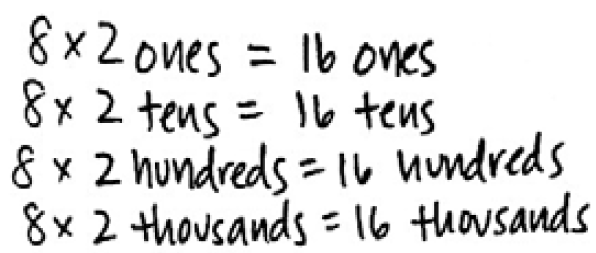 8 × 2 ones = 16 ones
8 × 2 tens = 16 tens
8 × 2 hundreds = 16 hundreds
8 × 2 thousands = 16 thousands